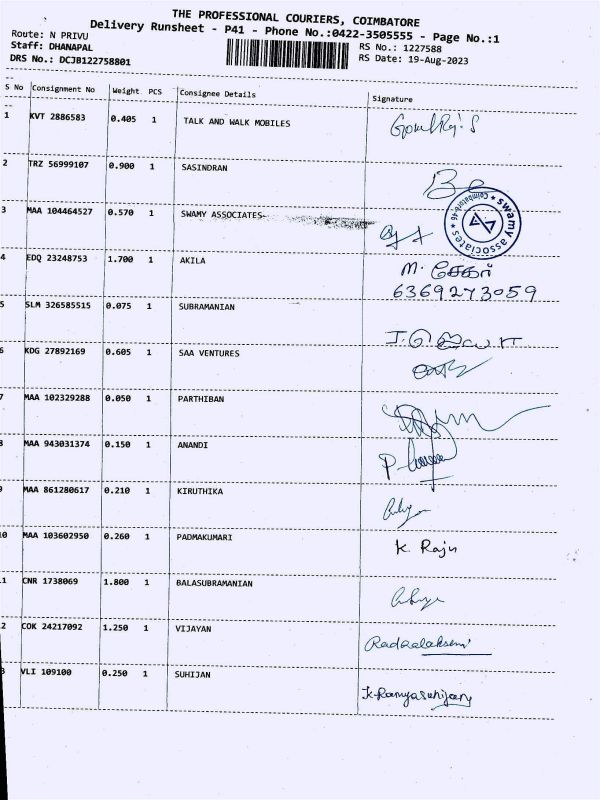 THE PROFESSIONAL COURIERS, COIMBATORE
Delivery Runsheet - P41 - Phone No.:0422-3505555 - Page No.:1
Route: N PRIVU
Staff: DHANAPAL RS No.: 1227588
DRS No.: DCJB122758801 RS Date: 19-Aug-2023
S No Consignment No Weight PCS Consignee Details Signature
1 KVT 2886583 0.405 1 TALK AND WALK MOBILES
2 TRZ 56999107 0.900 1 SASINDRAN
3 MAA 104464527 0.570 1 SWAMY ASSOCIATES-
swamy associates ★ Coimbatore-46 ★
4 EDQ 23248753 1.700 1 AKILA M. சேகர்
6369273059
5 SLM 326585515 0.075 1 SUBRAMANIAN
6 KDG 27892169 0.605 1 SAA VENTURES
7 MAA 102329288 0.050 1 PARTHIBAN
8 MAA 943031374 0.150 1 ANANDI
9 MAA 861280617 0.210 1 KIRUTHIKA
10 MAA 103602950 0.260 1 PADMAKUMARI K. Raju
1 CNR 1738069 1.800 1 BALASUBRAMANIAN
2 COK 24217092 1.250 1 VIJAYAN
3 VLI 109100 0.250 1 SUHIJAN K.Ramyasuhijan